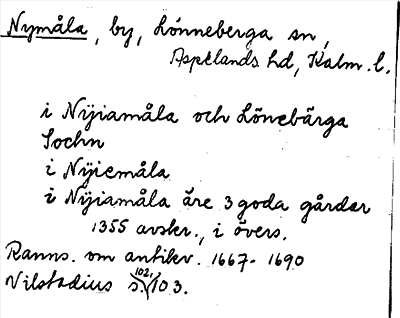 Nymåla, by, Lönneberga sn,
Aspelands hd, Kalm. l.
i Nÿiamåla och Lönebärga
Sochn
i Nÿiemåla
i Nÿiamåla äre 3 goda gårdar
1355 avskr., i övers.
Ranns. om antikv. 1667-1690
Vilstadius s. 102, 103.